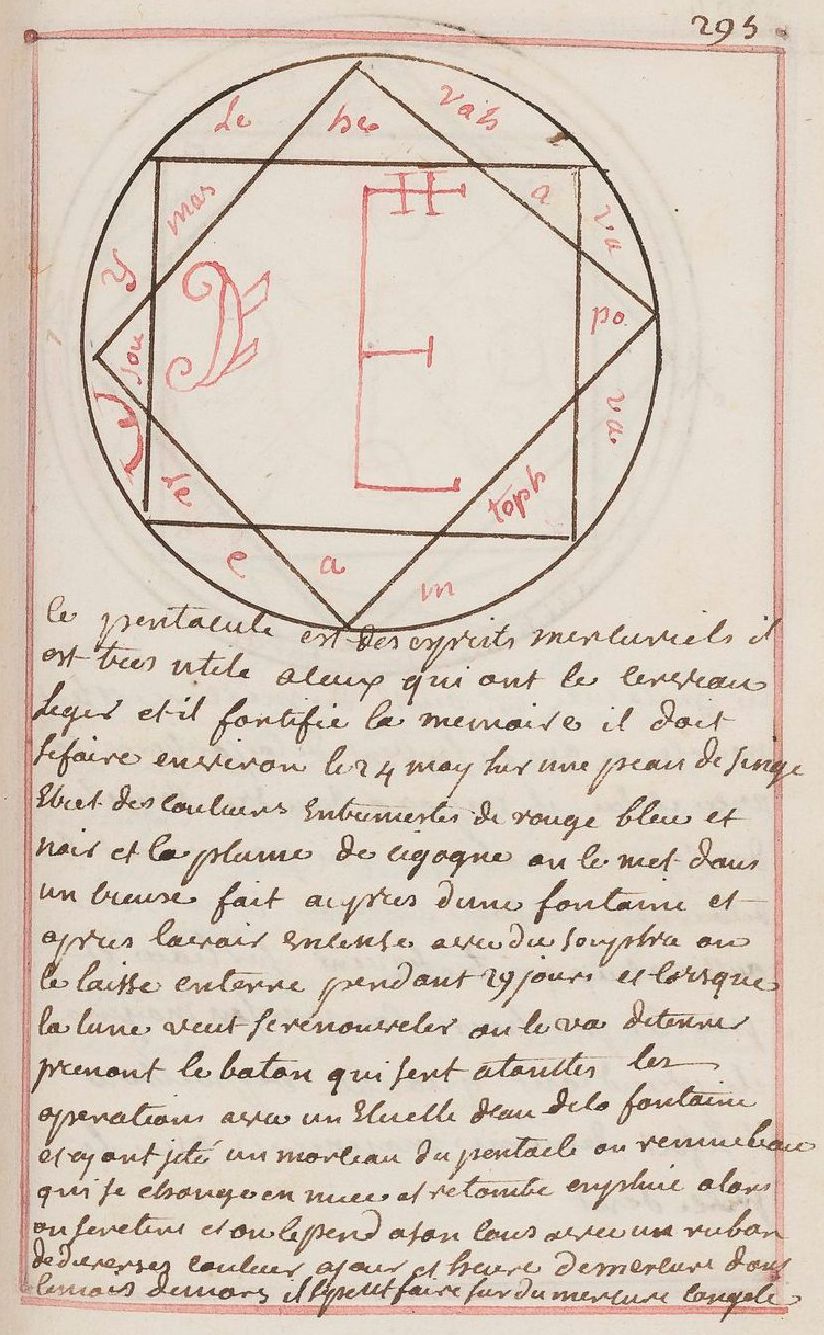 295
Je he vah
mas a va
y
sou po
va
le toph
e a m
le pentacule est des esprits mercuriels il
est tres utile a ceux qui ont le cerveau
leger et il fortifie la memoire il doit
se faire environ le 24 may sur une peau de singe
et des couleurs entremeles de rouge bleu et
noir et la plume de cigogne on le met dans
un creuse fait aupres dune fontaine et
apres lavoir encense avec du souphre on
le laisse enterre pendant 29 jours et lorsque
la lune veut se renouveler on le va deterrer
prenant le baton qui sert a touttes les
operations avec un Ecuelle deau de la fontaine
et ayant jeté un morceau du pentacle on remue leau
qui se change en nuee et retombe en pluie alors
on se retire et on le pend a son cous avec un ruban
de diverses couleur a jour et heure de mercure dans
le mois de mars il se peut faire sur du mercure congele